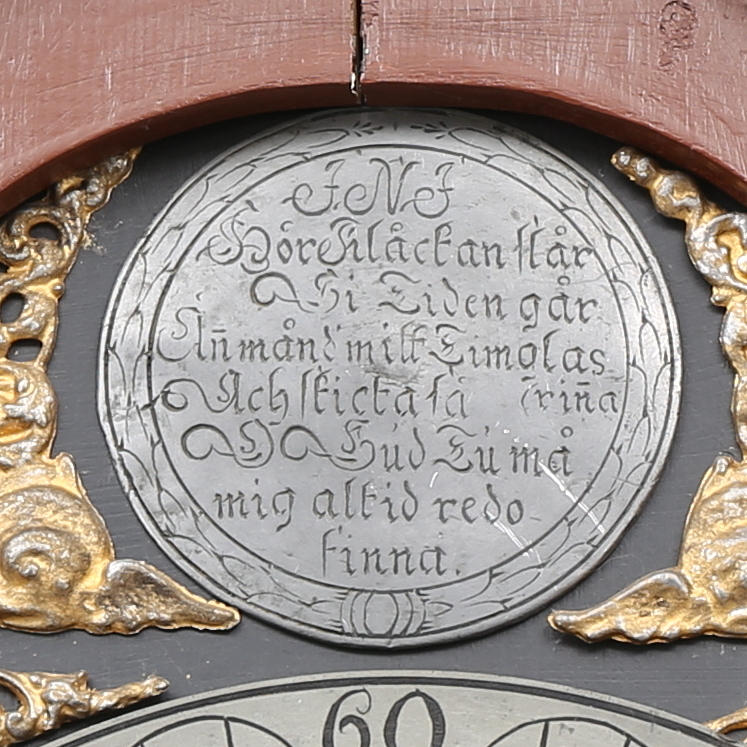 J N J
Hör Klåckan slår
Si Tiden går
mitt Timglas
Ach skicka så
O Gud Tu må
mig altid redo
finna.
60